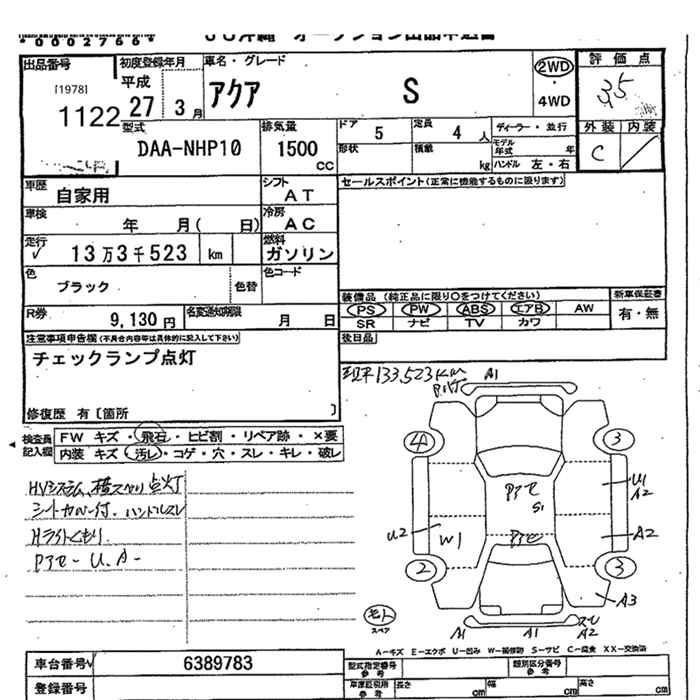 *0002766* JU沖縄 オークション出品申込書
出品番号 [1978] 1122
初度登録年月 平成 27 3 月
車名・グレード アクア S
2WD ・ 4WD
評価点 3.5
外装 内装
C
型式 DAA-NHP10
排気量 1500 CC
ドア 5 定員 4 人
形状 積載 kg
ディーラー・並行
モデル年式 年
ハンドル 左・右
車歴 自家用
シフト AT
セールスポイント(正常に機能するものに限ります)
車検 年 月( 日)
冷房 AC
走行 ✓ 13万3千523 km
燃料 ガソリン
色 ブラック 色替
色コード
装備品 (純正品に限り○をつけてください)
新車保証書
PS PW ABS エアB AW
有・無
SR ナビ TV カワ
R券 9,130 円
名変通知期限 月 日
後日品
注意事項申告欄(不具合内容等は具体的に記入して下さい)
チェックランプ点灯
修復歴 有〔箇所 〕
現 133,523KM
検査員記入欄
FW キズ・飛石・ヒビ割・リペア跡・×要
内装 キズ・汚レ・コゲ・穴・スレ・キレ・破レ
HVシステム、横スベリ点灯
シートカバー付、ハンドルスレ
Hライトくもり
Pアセ- U.A-
A1
4 3
Pアセ S1
U1 A2
U2 W1
Pアセ
A2
2 3
A3
スペア
A1 A1 A2
A-キズ E-エクボ U-凹み W-補修跡 S-サビ C-腐食 XX-交換済
車台番号 ✓ 6389783
型式指定番号 参考
類別区分番号 参考
登録番号
車庫証明用 参考
長さ cm 幅 cm 高さ cm